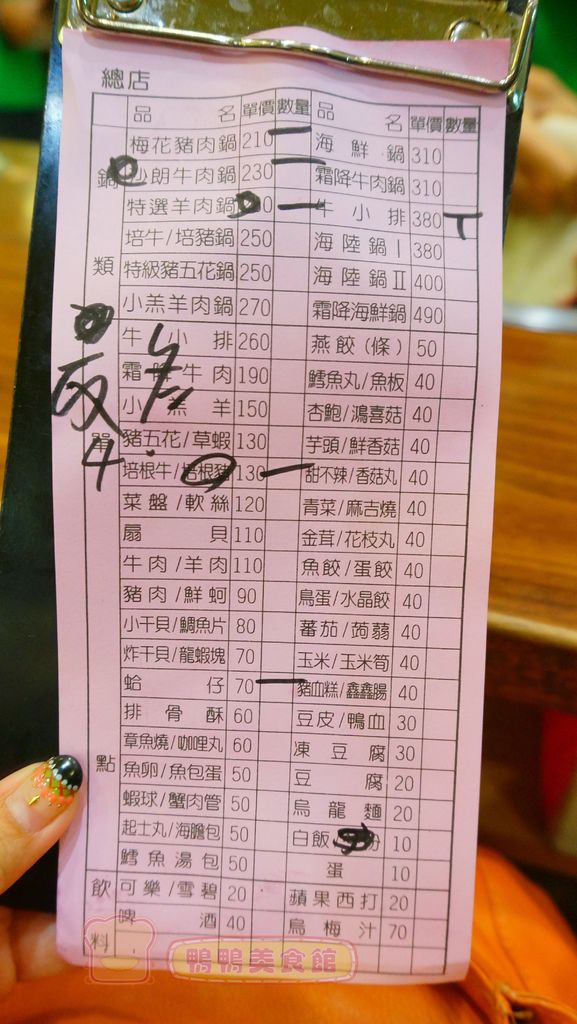 總店
品 名 單價 數量 品 名 單價 數量
鍋類
梅花豬肉鍋 210 一 海鮮鍋 310
沙朗牛肉鍋 230 一 霜降牛肉鍋 310
特選羊肉鍋 0 一 牛小排 380 T
培牛/培豬鍋 250 海陸鍋I 380
特級豬五花鍋 250 海陸鍋II 400
小羔羊肉鍋 270 霜降海鮮鍋 490
單點
牛小排 260 燕餃(條) 50
霜降牛肉 190 鱈魚丸/魚板 40
小羔羊 150 杏鮑/鴻喜菇 40
豬五花/草蝦 130 芋頭/鮮香菇 40
4.
培根牛/培根豬 130 一 甜不辣/香菇丸 40
菜盤/軟絲 120 青菜/麻吉燒 40
扇貝 110 金茸/花枝丸 40
牛肉/羊肉 110 魚餃/蛋餃 40
豬肉/鮮蚵 90 鳥蛋/水晶餃 40
小干貝/鯛魚片 80 蕃茄/蒟蒻 40
炸干貝/龍蝦塊 70 玉米/玉米筍 40
蛤仔 70 一 豬血糕/鑫鑫腸 40
排骨酥 60 豆皮/鴨血 30
章魚燒/咖哩丸 60 凍豆腐 30
魚卵/魚包蛋 50 豆腐 20
蝦球/蟹肉管 50 烏龍麵 20
起士丸/海膽包 50 白飯 粉 10
鱈魚湯包 50 蛋 10
飲料
可樂/雪碧 20 蘋果西打 20
啤酒 40 烏梅汁 70
鴨鴨美食館